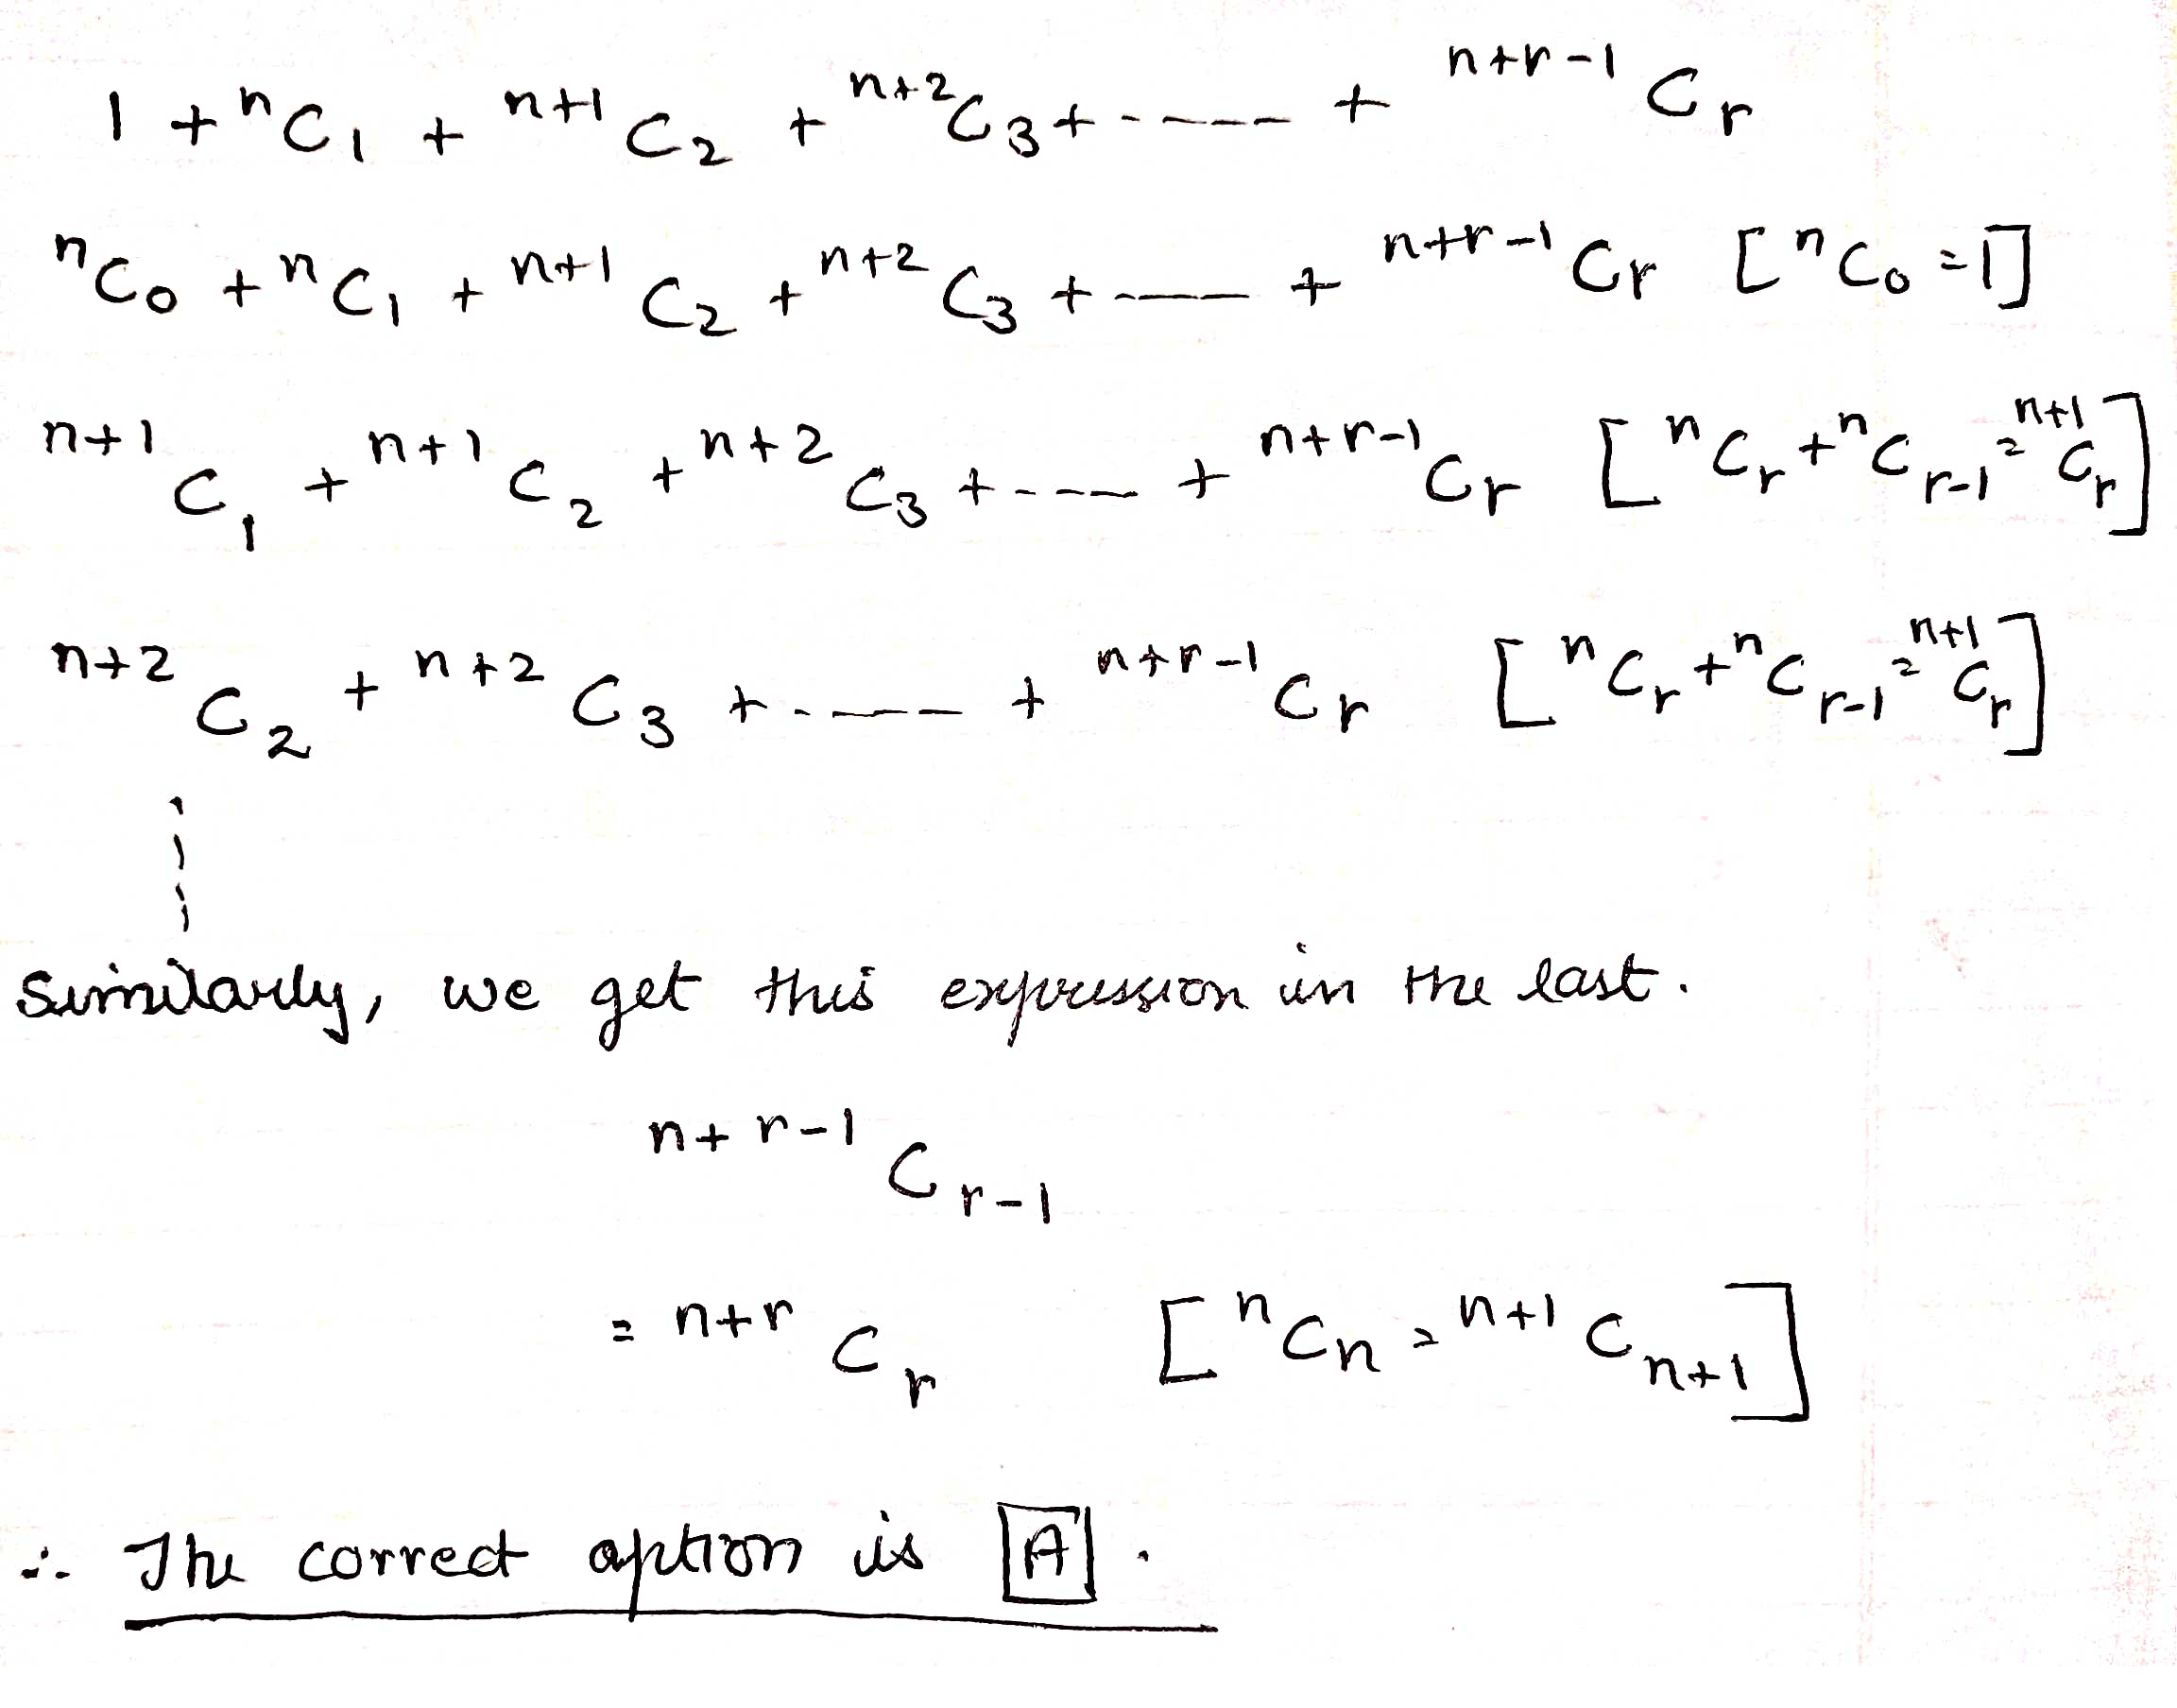 1 + ⁿC₁ + ⁿ⁺¹C₂ + ⁿ⁺²C₃ + ----- + ⁿ⁺ʳ⁻¹Cᵣ
ⁿC₀ + ⁿC₁ + ⁿ⁺¹C₂ + ⁿ⁺²C₃ + ---- + ⁿ⁺ʳ⁻¹Cᵣ [ⁿC₀ = 1]
ⁿ⁺¹C₁ + ⁿ⁺¹C₂ + ⁿ⁺²C₃ + ---- + ⁿ⁺ʳ⁻¹Cᵣ [ⁿCᵣ + ⁿCᵣ₋₁ = ⁿ⁺¹Cᵣ]
ⁿ⁺²C₂ + ⁿ⁺²C₃ + ---- + ⁿ⁺ʳ⁻¹Cᵣ [ⁿCᵣ + ⁿCᵣ₋₁ = ⁿ⁺¹Cᵣ]
Similarly, we get this expression in the last.
ⁿ⁺ʳ⁻¹Cᵣ₋₁
= ⁿ⁺ʳCᵣ [ⁿCₙ = ⁿ⁺¹Cₙ₊₁]
∴ The correct option is A.